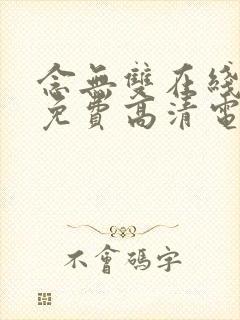 念無雙在綫
免費高清電
不會碼字